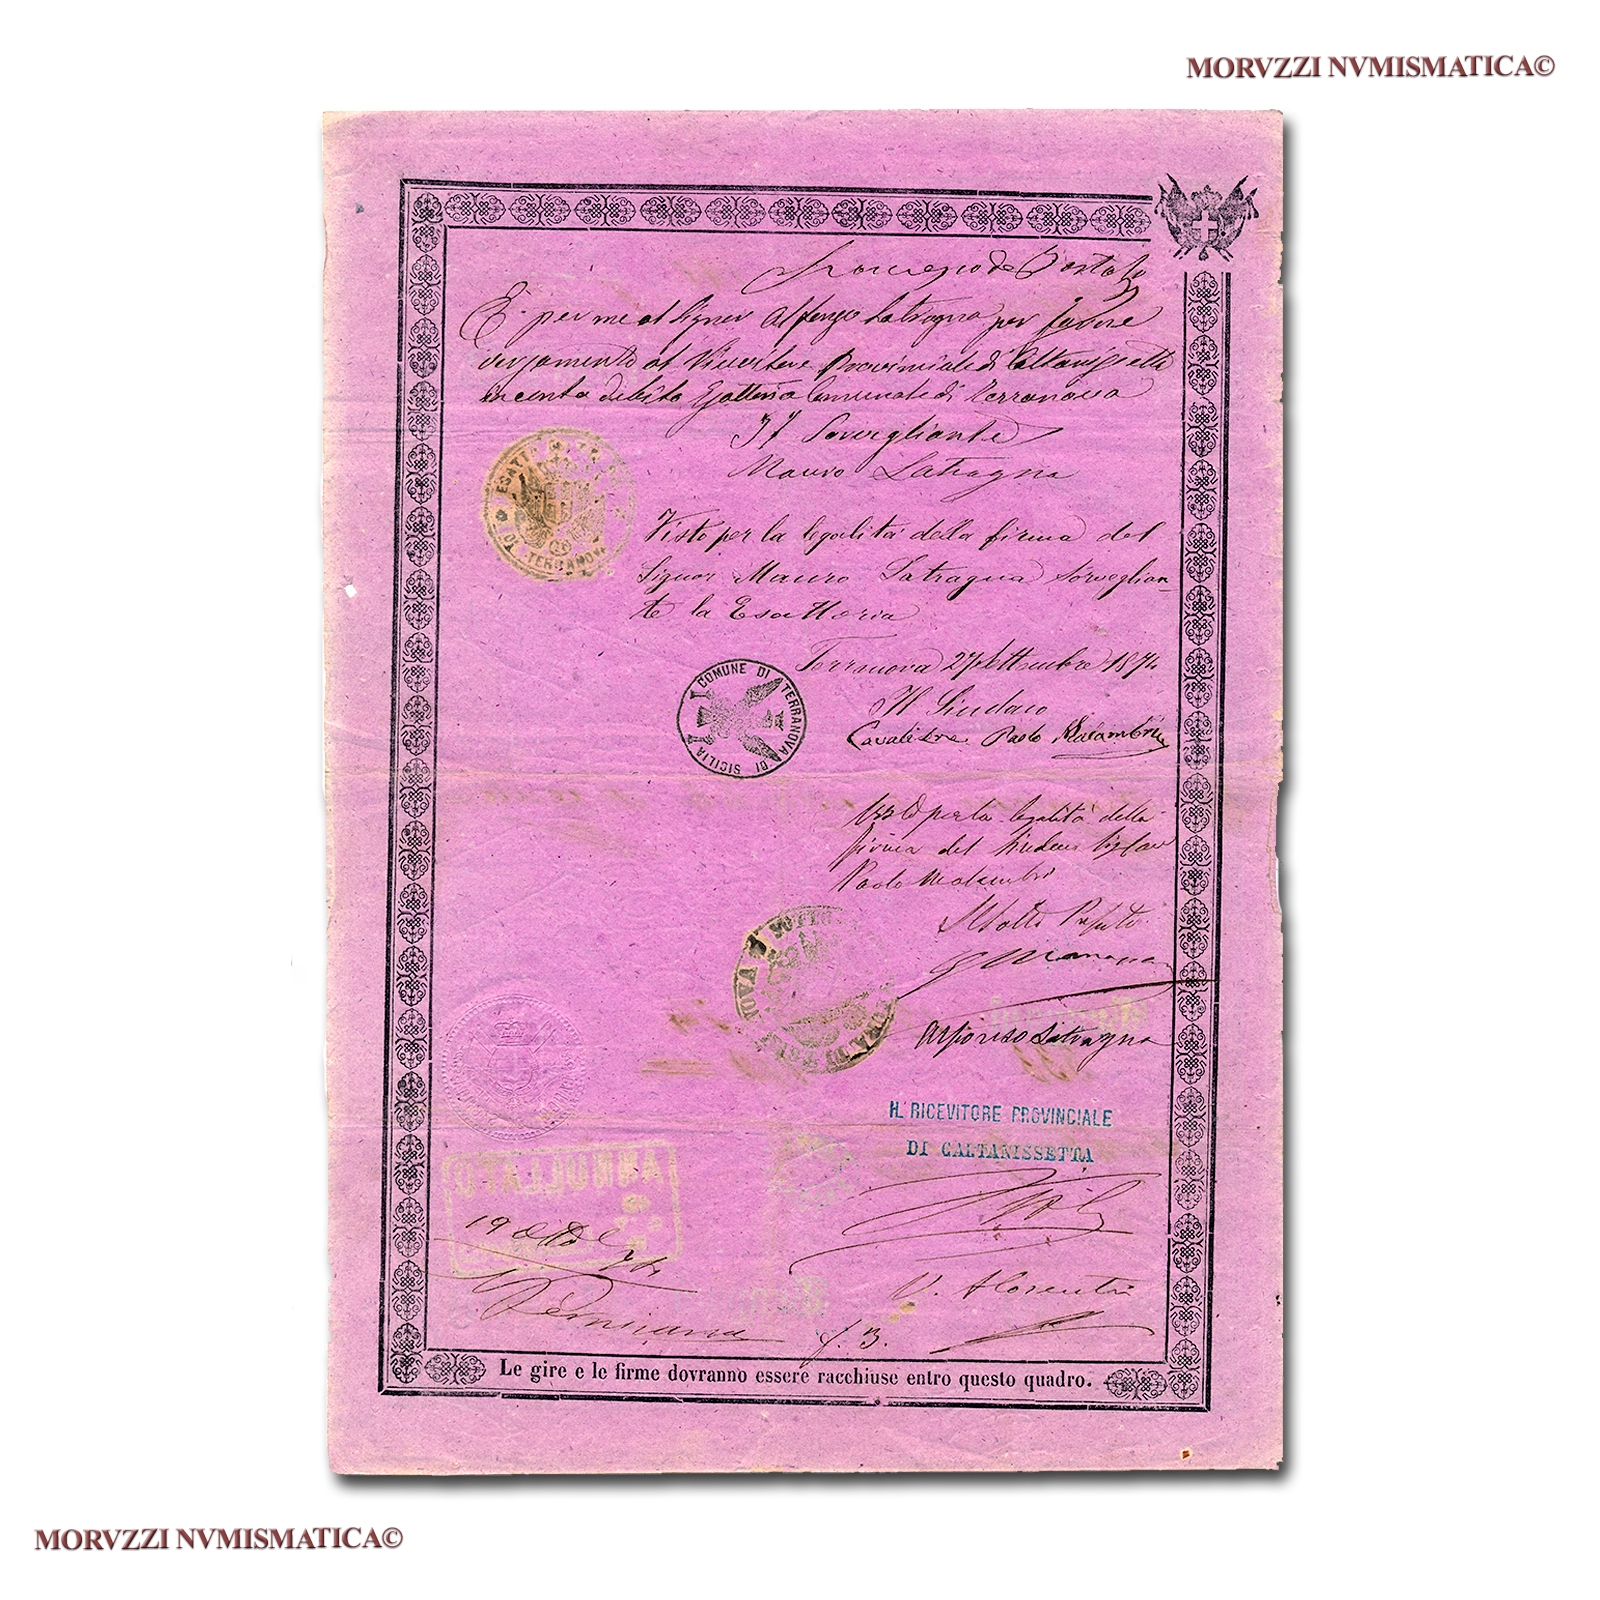 MORVZZI NVMISMATICA©
E per me al Signor Alfonso Latragna per favore
versamento al Ricevitore Provinciale di Caltanissetta
in conto debito Esattoria Comunale di Terranova
Il Sorvegliante
Mauro Latragna
ESATT
DI TERRANOVA
Visto per la legalità della firma del
Signor Mauro Latragna Sorveglian-
te la Esattoria
Terranova 27 Settembre 1874
Il Sindaco
Cavaliere Paolo Malambri
COMUNE DI TERRANOVA DI SICILIA
Visto per la legalità della
firma del Sindaco
Paolo Malambri
Il Sotto Prefetto
Alfonso Latragna
IL RICEVITORE PROVINCIALE
DI CALTANISSETTA
ANNULLATO
19
V. Florentin
f. 3.
Le gire e le firme dovranno essere racchiuse entro questo quadro.
MORVZZI NVMISMATICA©